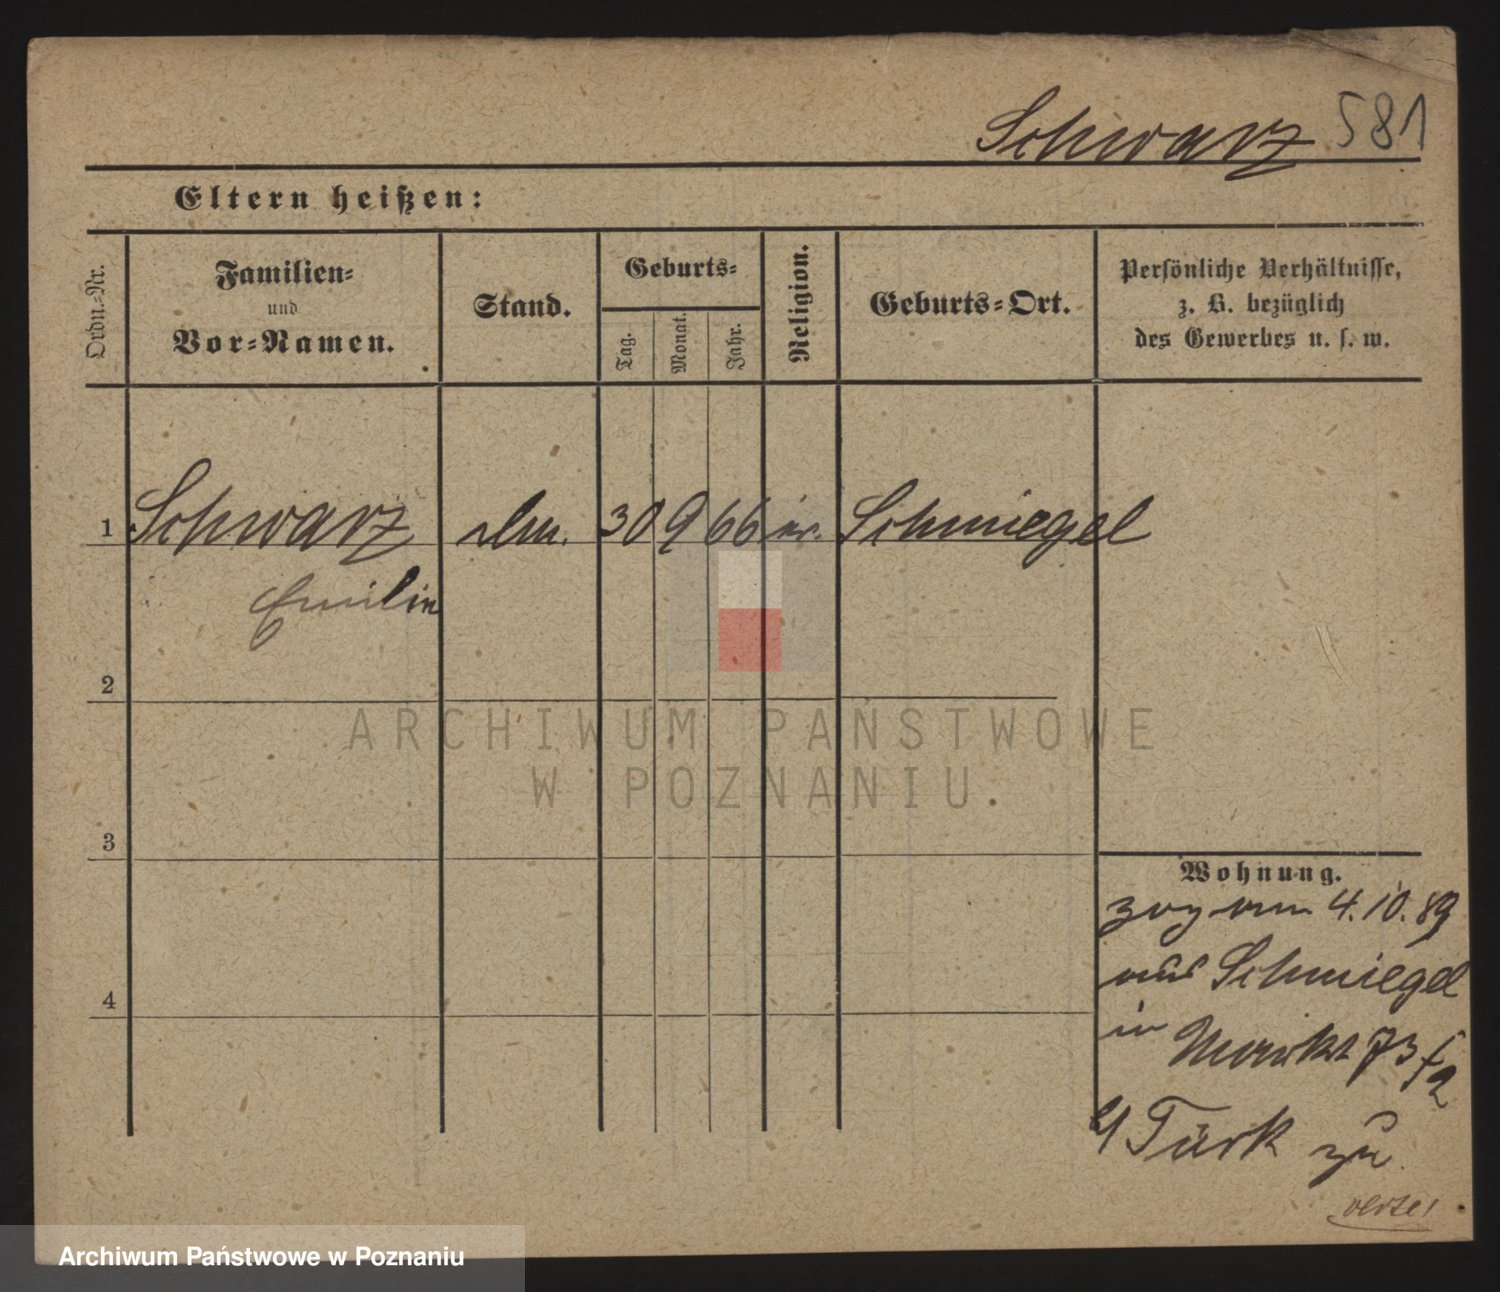 Schwarz 581
Eltern heißen:
Ordn.-Nr.
Familien-
und
Vor-Namen.
Stand.
Geburts-
Tag.
Monat.
Jahr.
Religion.
Geburts-Ort.
Persönliche Verhältnisse,
z. B. bezüglich
des Gewerbes u. s. w.
1 Schwarz 30 9 66 Schmiegel
Emilie
2
ARCHIWUM PAŃSTWOWE
W POZNANIU
3
Wohnung.
zog am 4.10.89
aus Schmiegel
in Markt 73
Türk zu
4
Archiwum Państwowe w Poznaniu